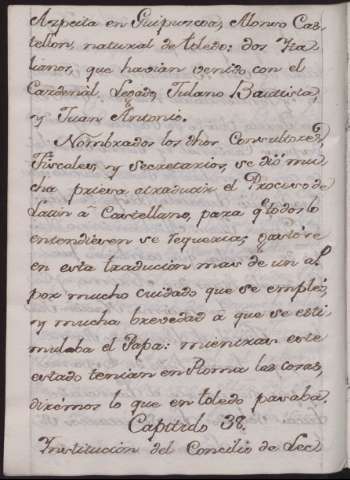 Azpeita en Guipuzcoa, Alonso Cas-
tellon, natural de toledo: dos Ita
lianos, que havian venido con el
Cardenal Legado, Tulano Bautista,
y Juan Antonio.
Nombrados los dhos Consultores,
Fiscales, y Secretarios, se dió mu
cha priesa á traducir el Proceso de
Latin â Castellano, para q todos lo
entendiesen se requeria; gastóse
en esta traducion mas de un añ
por mucho cuidado que se empleó,
y mucha brevedad â que se esti
mulaba el Papa: mientras este
estado tenian en Roma las cosas,
dirémos lo que en toledo pasaba.
Capitulo 38.
Institucion del Concilio de Lec